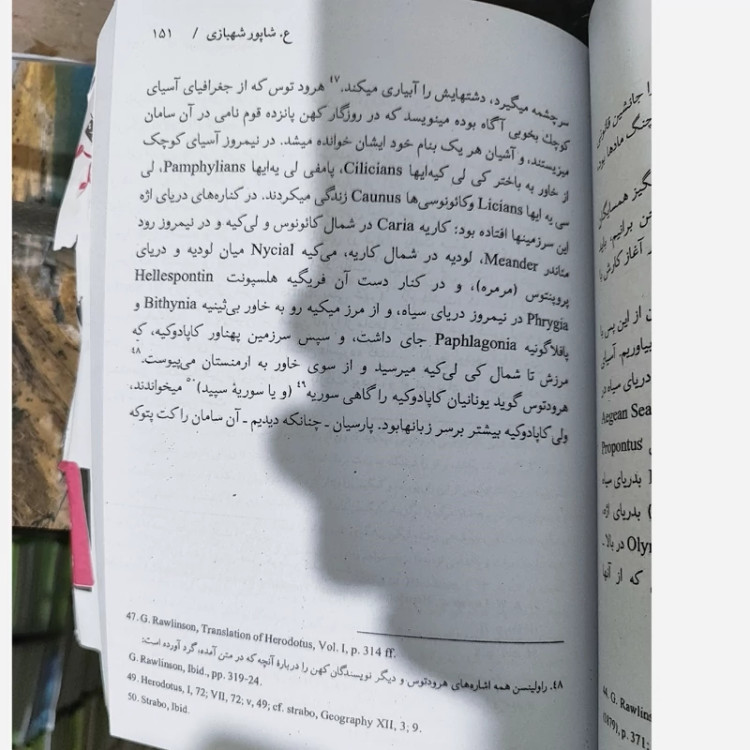 ع. شاپور شهبازی / ۱۵۱
سرچشمه میگیرد، دشتهایش را آبیاری میکند.۴۷ هرود توس که از جغرافیای آسیای
کوچک بخوبی آگاه بوده مینویسد که در روزگار کهن پانزده قوم نامی در آن سامان
میزیستند، و آشیان هر یک بنام خود ایشان خوانده میشد. در نیمروز آسیای کوچک
از خاور به باختر کی لی کیه‌ایها Cilicians، پامفی لی یه‌ایها Pamphylians، لی
سی یه ایها Licians وکائونوسی‌ها Caunus زندگی میکردند. در کناره‌های دریای اژه
این سرزمینها افتاده بود: کاریه Caria در شمال کائونوس و لی‌کیه و در نیمروز رود
مئاندر Meander، لودیه در شمال کاریه، می‌کیه Nycial میان لودیه و دریای
پروپنتوس (مرمره)، و در کنار دست آن فریگیه هلسپونت Hellespontin
Phrygia در نیمروز دریای سیاه، و از مرز میکیه رو به خاور بی‌ثینیه Bithynia و
پافلاگونیه Paphlagonia جای داشت، و سپس سرزمین پهناور کاپادوکیه، که
مرزش تا شمال کی لی‌کیه میرسید و از سوی خاور به ارمنستان می‌پیوست.۴۸
هرودتوس گوید یونانیان کاپادوکیه را گاهی سوریه۴۹ (و یا سوریهٔ سپید)۵۰ میخواندند،
ولی کاپادوکیه بیشتر برسر زبانهابود. پارسیان ـ چنانکه دیدیم ـ آن سامان را کت پتوکه
47. G. Rawlinson, Translation of Herodotus, Vol. I, p. 314 ff.
۴۸. راولینسن همه اشاره‌های هرودتوس و دیگر نویسندگان کهن را دربارهٔ آنچه که در متن آمده، گرد آورده است:
G. Rawlinson, Ibid., pp. 319-24.
49. Herodotus, I, 72; VII, 72; v, 49; cf. strabo, Geography XII, 3; 9.
50. Strabo, Ibid.
را جانشین قانونی
جنگ مادها بود
آغاز کارش
از این پس
بیاوریم. آسیای
دریای سیاه در
Aegean Sea
Propontus
بدریای سیاه
بدریای اژه
در بالا
که از آنها
G. Rawlins
p. 371